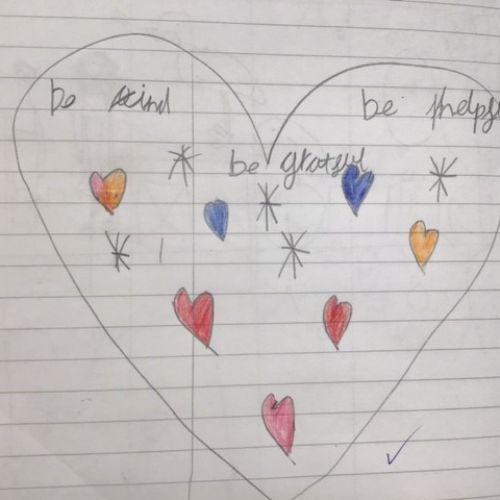 be kind
be
be grateful